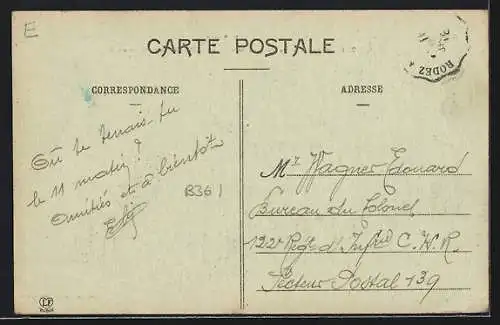 E
CARTE POSTALE
RODEZ
CORRESPONDANCE
ADRESSE
Où te tenais-tu
le 11 matin ?
Amitiés et à bientôt
B361
Mr Wagner Edouard
Bureau du Colonel
122e Régt d'Infrie C. H. R.
Secteur Postal 139